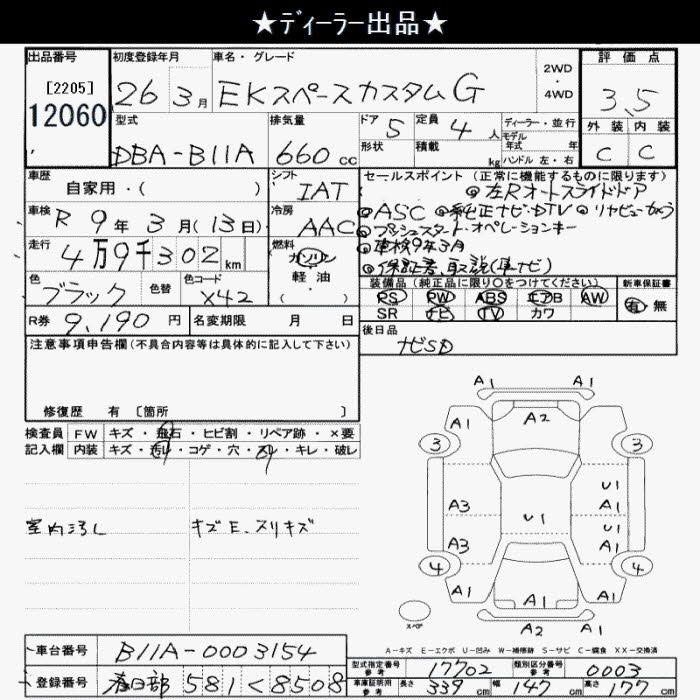 ★ディーラー出品★
出品番号
[2205]
12060
初度登録年月
26 3月
車名・グレード
EKスペースカスタムG
2WD
・
4WD
評価点
3.5
外装 内装
C C
型式
DBA-B11A
排気量
660cc
ドア 5
形状
定員 4人
積載 kg
ディーラー・並行
モデル
年式 年
ハンドル 左・右
車歴
自家用・( )
シフト
IAT
車検 R 9年3月(13日)
冷房
AAC
走行
4万9千302km
燃料
ガソリン
・
軽・油
( )
色
ブラック
色替
色コード
X42
R券 9,190円
名変期限 月 日
セールスポイント(正常に機能するものに限ります)
◎左Rオートスライドドア
◎ASC ◎純正ナビ・DTV ◎リヤビューカメラ
◎プッシュスタートオペレーションキー
◎車検9年3月
◎保証書、取説(車ナビ)
装備品(純正品に限り○をつけてください)
PS PW ABS エアB AW
SR ナビ TV カワ
新車保証書
有 無
後日品
ナビSD
注意事項申告欄(不具合内容等は具体的に記入して下さい)
修復歴 有〔箇所 〕
検査員 FW キズ・飛石・ヒビ割・リペア跡・×要
記入欄 内装 キズ・汚レ・コゲ・穴・スレ・キレ・破レ
室内汚レ
キズE、スリキズ
A1 A1
A1 A2 A1
3 3
A3 U1 U1
A1
U1
A3 A1
4 4
A1 A1 A1
A2 A1
スペア
A-キズ E-エクボ U-凹み W-補修跡 S-サビ C-腐食 XX-交換済
車台番号 B11A-0003154
登録番号 春日部 581く8508
型式指定番号
参考
17702
類別区分番号
参考
0003
車庫証明用
参考
長さ 339cm 幅 147cm 高さ 177cm